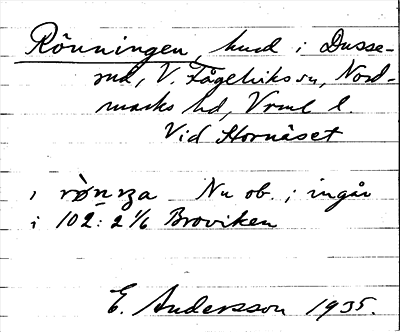 Rönningen, hmd i Dusse-
rud, V. Fågelviks sn, Nord-
marks hd, Vrml l.
Vid Stornäset
i Nu ob.; ingår
i 102: 2 1/6 Broviken
E. Andersson 1935.